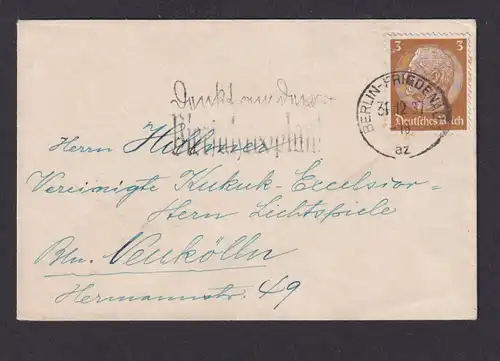 3 3
Deutsches Reich
BERLIN-FRIEDENAU
31.12.37
az
Denkt nur daran
Herrn
Vereinigte Kukuk-Excelsior-
Stern Lichtspiele
Bln. Neukölln
Hermannstr. 49